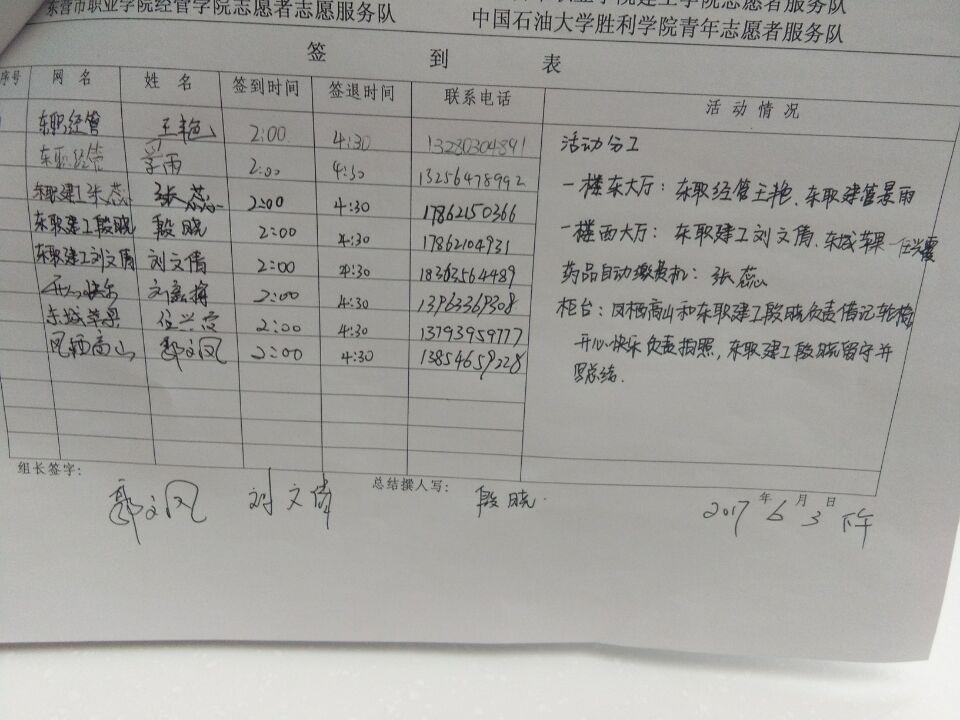 东营市职业学院经管学院志愿者志愿服务队
中国石油大学胜利学院青年志愿者服务队
签 到 表
序号 网名 姓名 签到时间 签退时间 联系电话 活动情况
东职经管 王艳 2:00 4:30 13280304891
东职经管 景雨 2:00 4:30 13256478992
东职建工张蕊 张蕊 2:00 4:30 17862150366
东职建工段晓 段晓 2:00 4:30 17862104931
东职建工刘文倩 刘文倩 2:00 4:30 18363564489
开心快乐 2:00 4:30 13963369308
东城苹果 任兴霞 2:00 4:30 13793959777
凤栖高山 郭文凤 2:00 4:30 13854659228
活动分工
一楼东大厅：东职经管王艳、东职建管景雨
一楼西大厅：东职建工刘文倩、东城苹果一任兴霞
药品自动缴费机：张蕊
柜台：凤栖高山和东职建工段晓负责借记轮椅
开心快乐负责拍照，东职建工段晓留守并
写总结.
组长签字： 郭文凤 刘文倩 总结撰人写： 段晓. 2017年6月3日下午